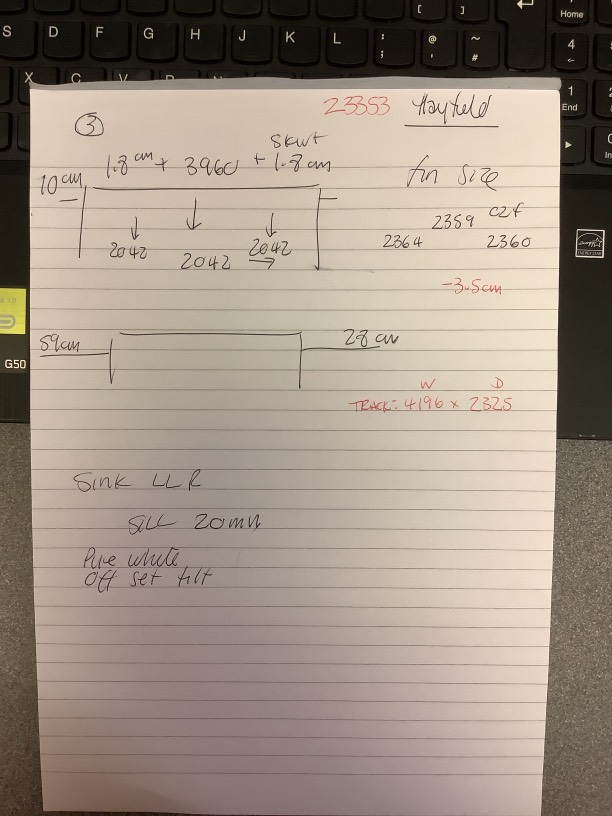 S D F G H J K L : ; @ ' ~ #
[ ]
Home
4
1
End
X C V B N M
G50
ENERGY STAR
23353 Hayfield
3
skwt
1.8 cm + 3960 + 1.8 cm
10 cm
fin size
2359 c2f
2364 2360
2042 2042 2042
-3.5cm
59cm 28 cm
W D
TRACK: 4196 x 2325
Sink LLR
Sill 20mm
Pure white
Off set tilt